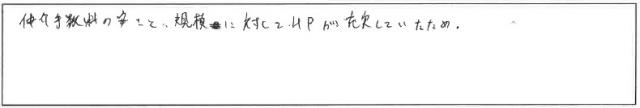 仲介手数料の安さと、規模に対してHPが充実していたため。